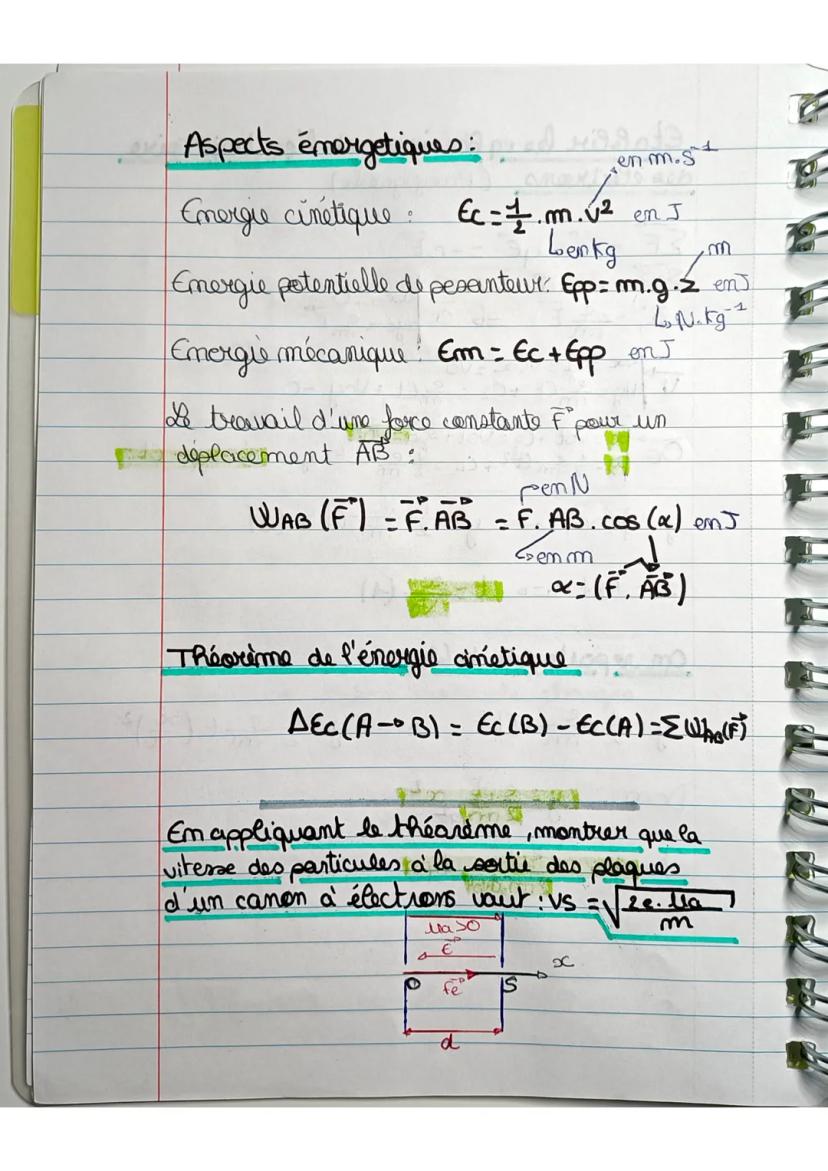 Aspects énergetiques :
en m.s⁻¹
Energie cinétique : Ec = 1/2 . m . v² en J
↳ en kg
m
Energie potentielle de pesanteur : Epp = m.g.z en J
↳ N.kg⁻¹
Energie mécanique : Em = Ec + Epp en J
Le travail d'une force constante F⃗ pour un
déplacement AB⃗ :
en N
WAB (F⃗) = F⃗ . AB⃗ = F . AB . cos (α) en J
↳ en m
α = (F⃗ , AB⃗)
Théorème de l'énergie cinétique
ΔEc (A → B) = Ec (B) - Ec (A) = Σ WAB (F⃗)
En appliquant le théorème, montrer que la
vitesse des particules à la sortie des plaques
d'un canon à électrons vaut : vs = √(2e.Ua / m)
Ua > 0
E⃗
x
O Fe⃗ S
d